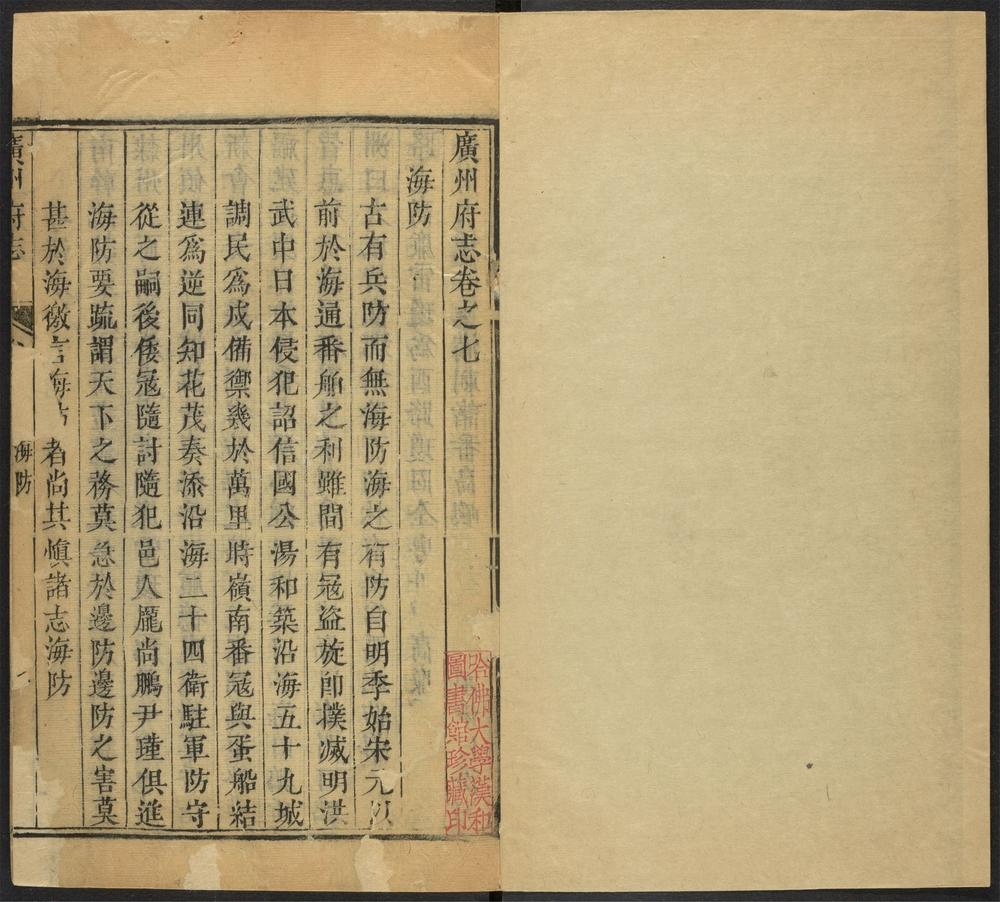 廣州府志卷之七
海防
古有兵防而無海防海之有防自明季始宋元以
前於海通番舶之利雖間有冦盜旋即撲滅明洪
武中日本侵犯詔信國公湯和築沿海五十九城
調民為戍備禦幾於萬里時嶺南番冦與蛋船結
連為逆同知花茂奏添沿海二十四衛駐軍防守
從之嗣後倭冦隨討隨犯邑人龎尚鵬尹瑾俱進
海防要疏謂天下之務莫急於邊防邊防之害莫
甚於海徼言海防者尚其慎諸志海防
廣州府志
海防
一
哈佛大學漢和
圖書館珍藏印